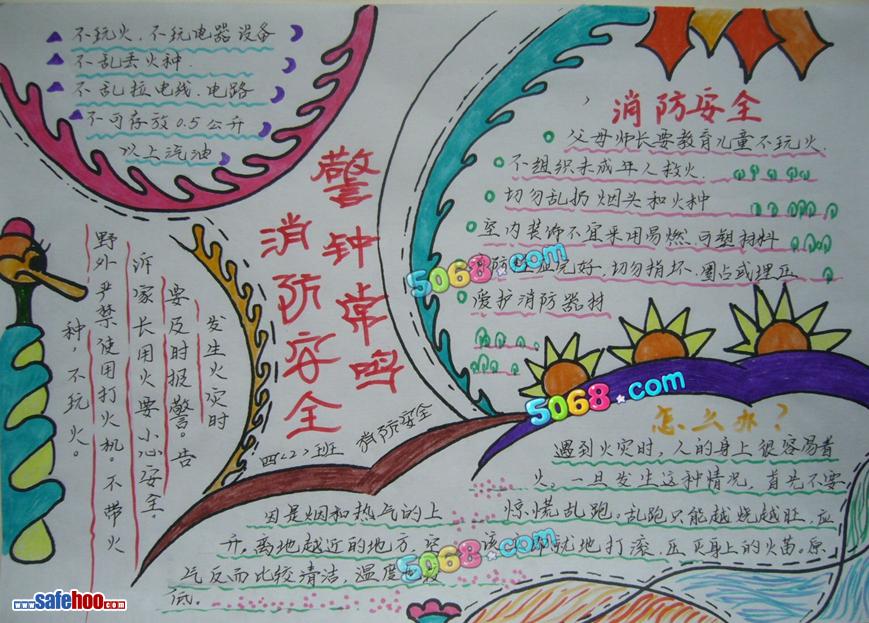 不玩火.不玩电器设备
不乱丢火种.
不乱拉电线.电路
不可存放0.5公升
以上汽油
警钟常鸣
消防安全
四<2>班 消防安全
消防安全
父母师长要教育儿童不玩火.
不组织未成年人救火.
切勿乱扔烟头和火种
室内装饰不宜采用易燃.可塑材料
完好,切勿损坏.圈占或埋压
爱护消防器材
发生火灾时
要及时报警。告
诉家长用火要小心安全.
野外严禁使用打火机。不带火
种,不玩火。
怎么办?
遇到火灾时,人的身上很容易着
火,一旦发生这种情况,首先不要
惊慌乱跑。乱跑只能越烧越旺,应
该 就地打滚,压灭身上的火苗。原
因是烟和热气的上
升,离地越近的地方,空
气反而比较清洁,温度
低.
5068.com
5068.com
5068.com
www.safehoo.com